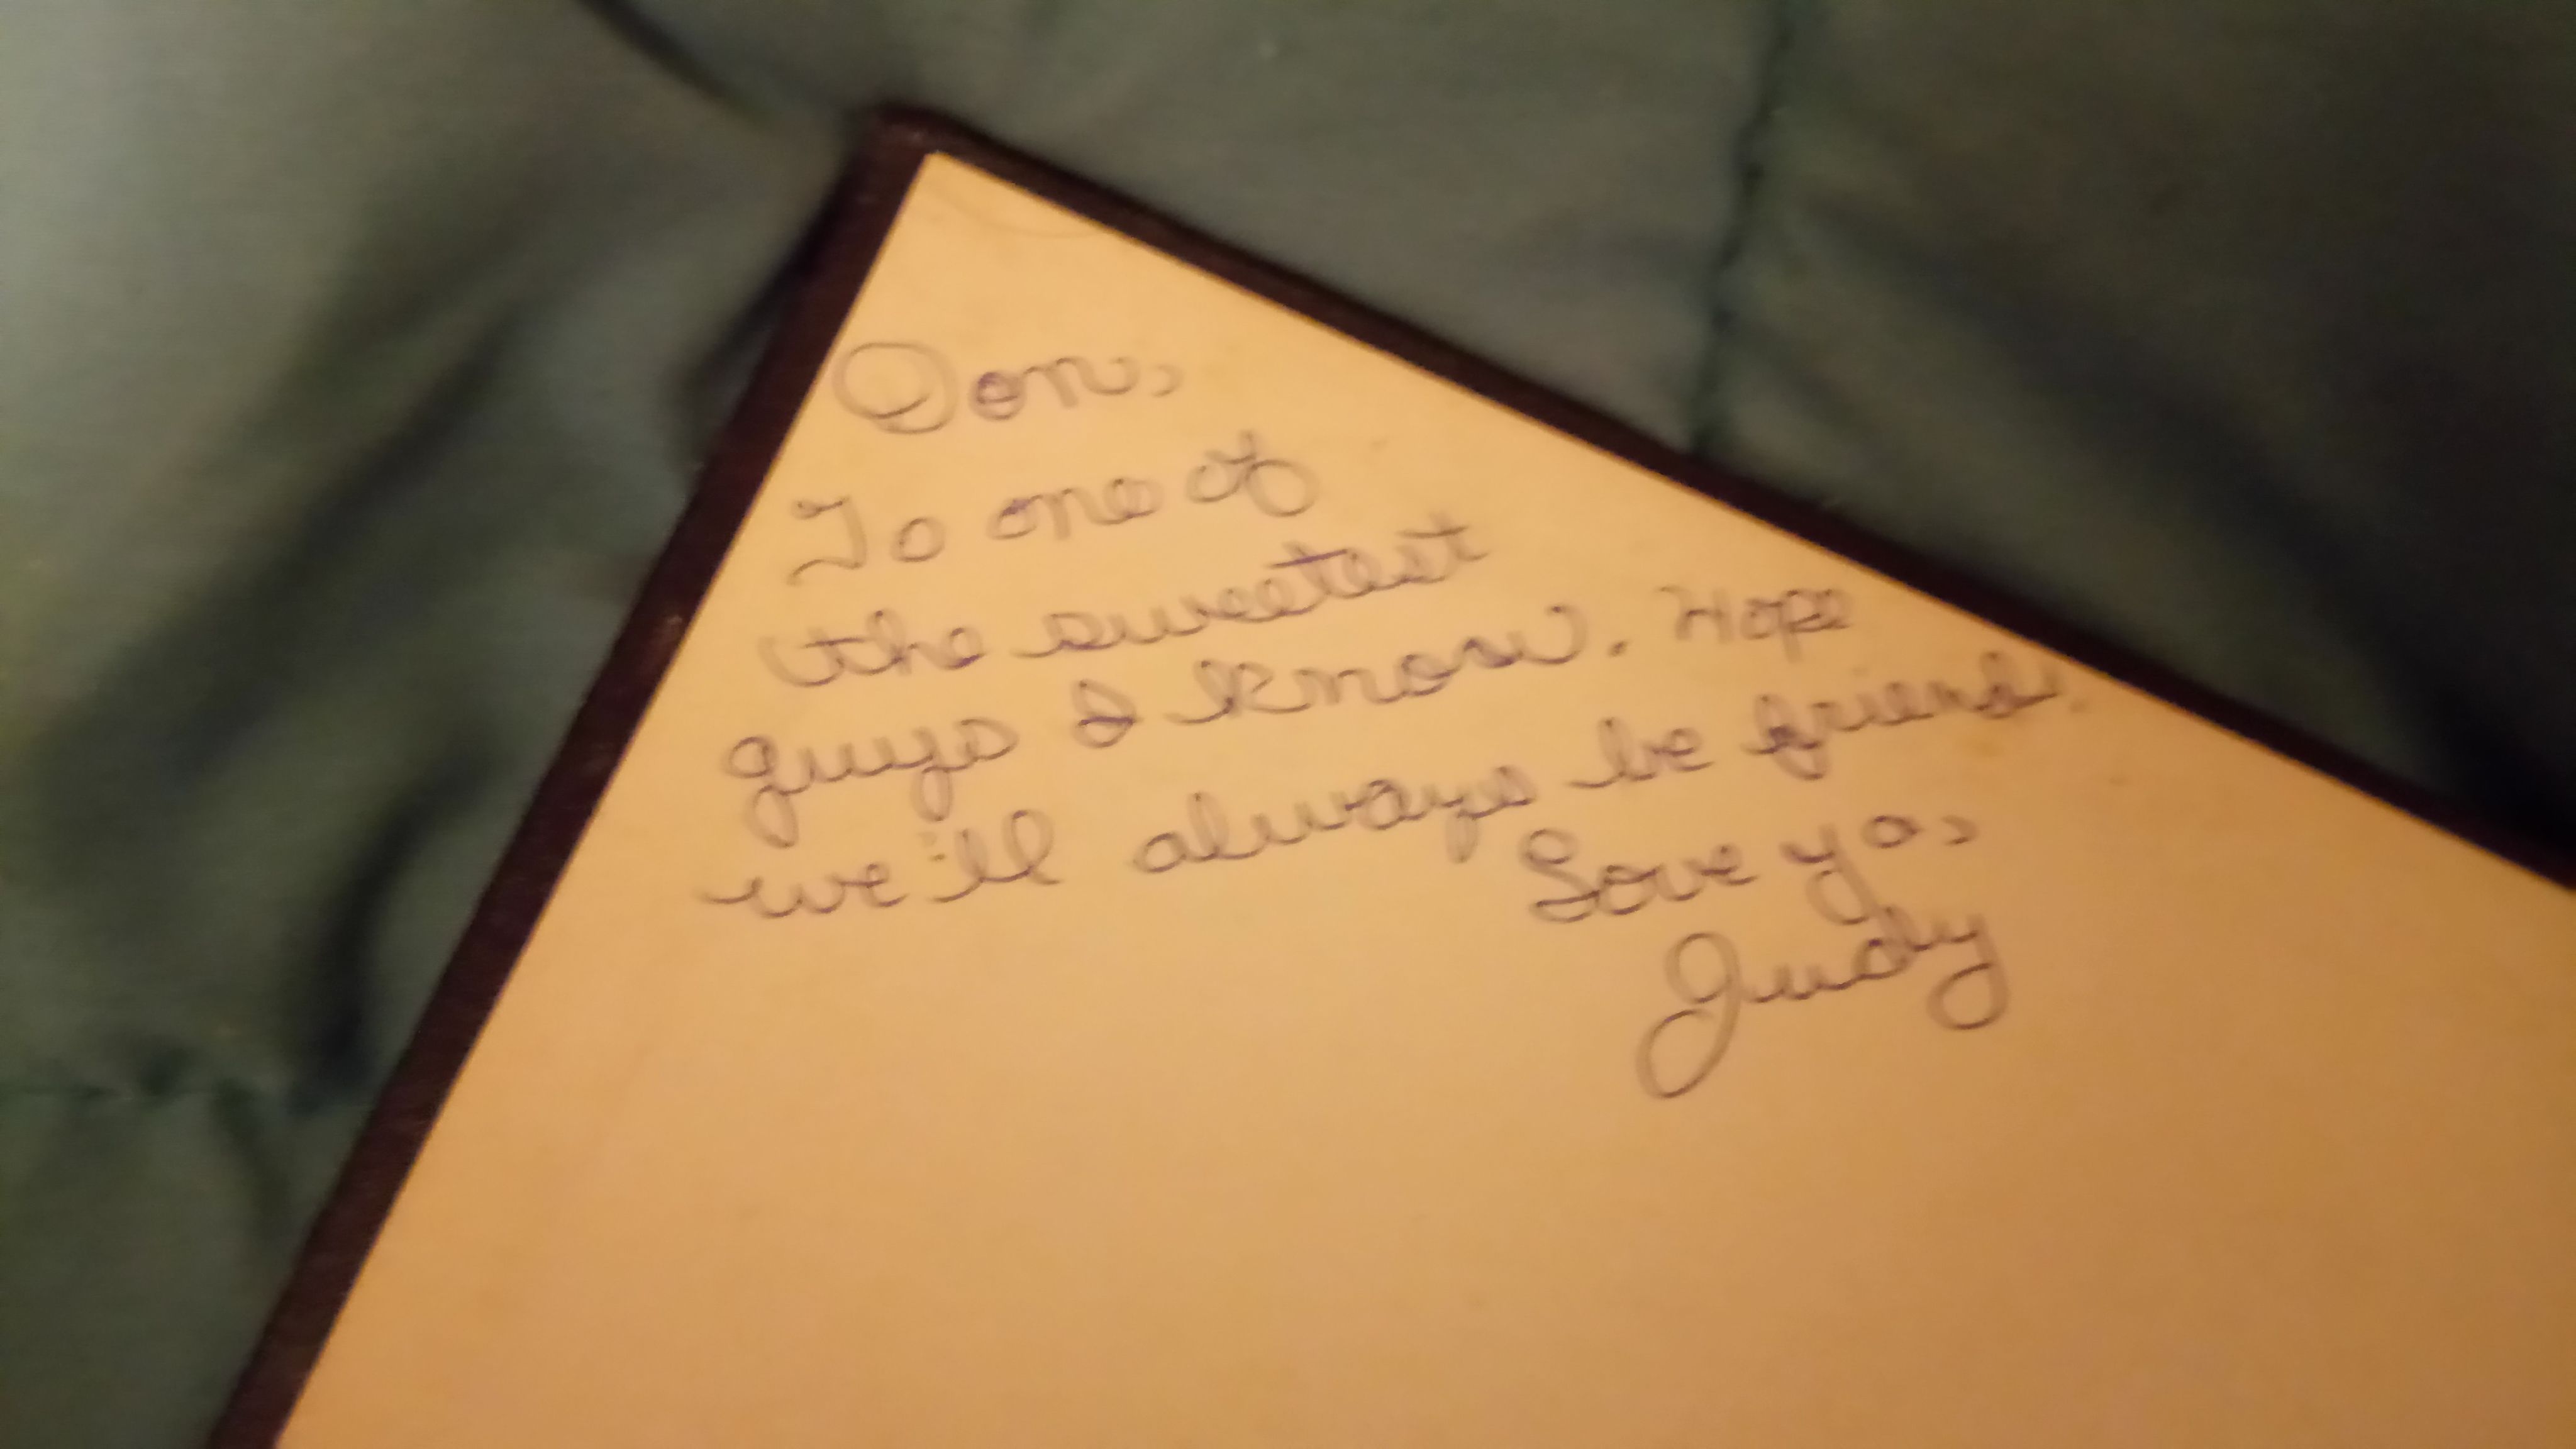 Don,
To one of
the sweetest
guys I know. Hope
we'll always be friends.
Love ya,
Judy